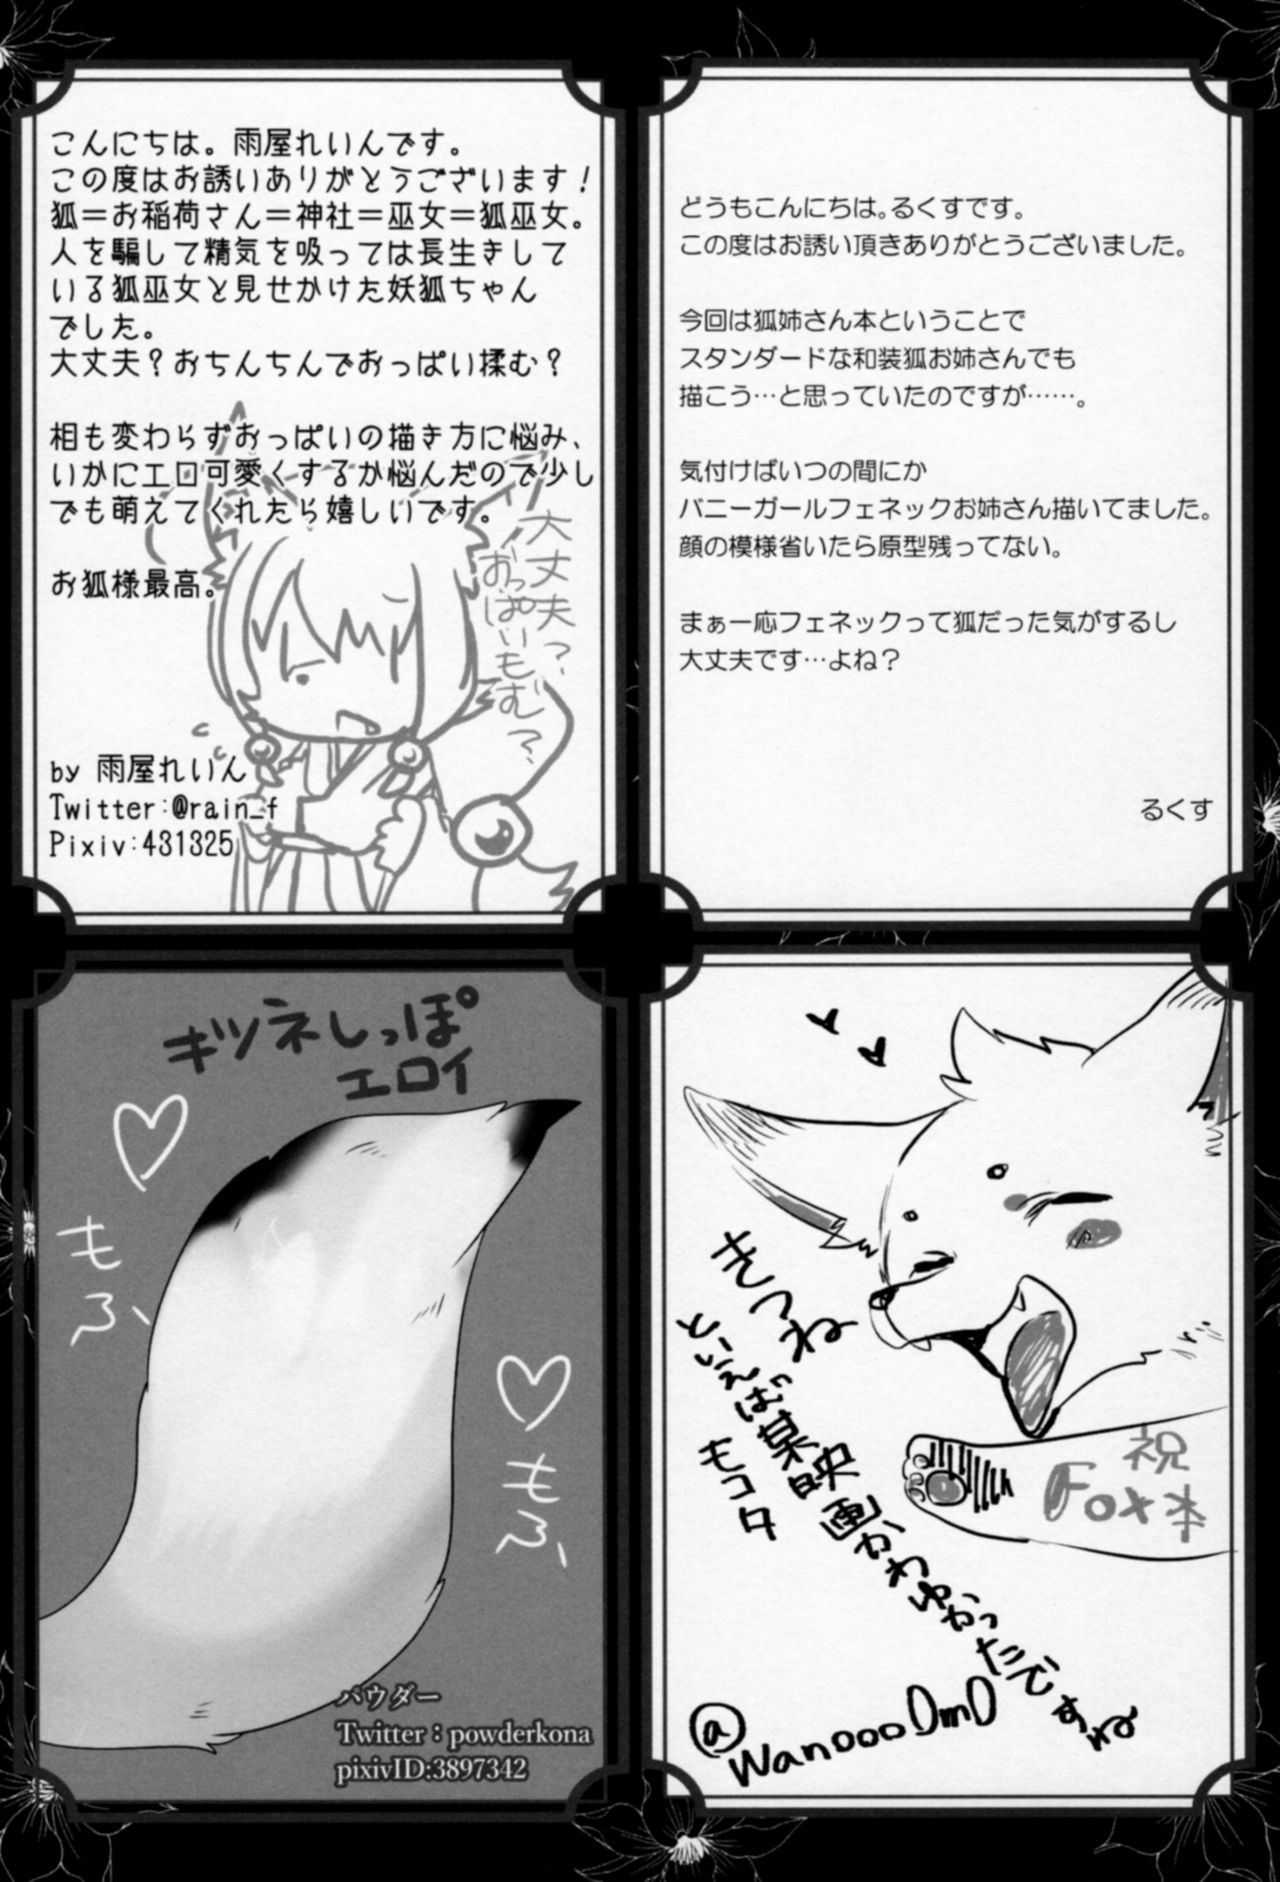 こんにちは。雨屋れいんです。
この度はお誘いありがとうございます！
狐＝お稲荷さん＝神社＝巫女＝狐巫女。
人を騙して精気を吸っては長生きして
いる狐巫女と見せかけた妖狐ちゃん
でした。
大丈夫？おちんちんでおっぱい揉む？
相も変わらずおっぱいの描き方に悩み、
いかにエロ可愛くするか悩んだので少し
でも萌えてくれたら嬉しいです。
お狐様最高。
大丈夫？
おっぱいもむ？
by 雨屋れいん
Twitter:@rain_f
Pixiv:431325
どうもこんにちは。るくすです。
この度はお誘い頂きありがとうございました。
今回は狐姉さん本ということで
スタンダードな和装狐お姉さんでも
描こう…と思っていたのですが……。
気付けばいつの間にか
バニーガールフェネックお姉さん描いてました。
顔の模様省いたら原型残ってない。
まぁ一応フェネックって狐だった気がするし
大丈夫です…よね？
るくす
キツネしっぽ
エロイ
もふ
もふ
パウダー
Twitter：powderkona
pixivID:3897342
きつね
といえば某映画かわゆかったですね
モコタ
祝
Fox本
@WanoooOmO